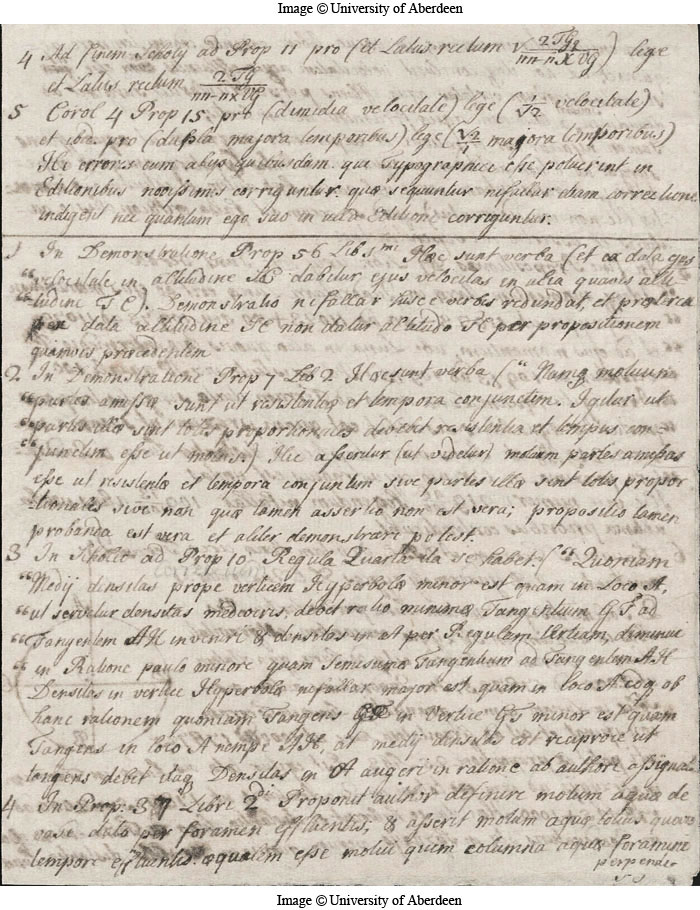 Image © University of Aberdeen
4 Ad finem Scholij ad Prop 11 pro (et Latus rectum √ 2TGq / nn-n × VG) lege
et Latus rectum 2TGq / nn-n × VG
5 Corol 4 Prop 15 pro (dimidia velocitate) lege (1/√2 velocitate)
et ibid. pro (dupla majora temporibus) lege (√2/1 majora temporibus)
Hi errores cum alijs quibusdam qui Typographici esse poterint in
Editionibus novissimis corriguntur. quæ sequuntur nifallar etiam correctione
indigent nec quantum ego scio in ulla Editione corriguntur.
1 In Demonstratione Prop 56 Lib 1mi Hæc sunt verba (et ex data ejus
"velocitate in altitudine dabitur ejus velocitas in alia quavis alti
"tudine TC). Demonstratio nifallar hisce verbis redundat, et præterea
data altitudine TC non datur altitudo TC per propositionem
quamvis præcedentem
2 In Demonstratione Prop 7 Lib 2 Hæc sunt verba ("Namq motuum
"partes amissæ sunt ut resistentiæ et tempora conjunctim. Igitur ut
"partes illæ sint totis proportionales debebit resistentia et tempus con-
"junctim esse ut motus.) Hic asseritur (ut videtur) motuum partes amissas
esse ut resistentiæ et tempora conjunctim sive partes illæ sint totis propor
tionales sive non quæ tamen assertio non est vera; propositio tamen
probanda est vera et aliter demonstrari potest.
3 In Scholio ad Prop 10 Regula Quarta ita se habet ("Quoniam
"Medij densitas prope verticem Hyperbolæ minor est quam in Loco A,
"ut servetur densitas mediocris, debet ratio minimæ Tangentium GT ad
"Tangentem AH inveniri & densitas in A per Regulam tertiam, diminui
"in Ratione paulo minore quam semisumæ Tangentium ad Tangentem AH
Densitas in vertice Hyperbolæ nifallar major est quam in loco A idq ob
hanc rationem quoniam Tangens GT in Vertice G minor est quam
Tangens in loco A nempe AH, at medij densitas est reciproce ut
tangens debet itaq Densitas in A augeri in ratione ab authore assignat
4 In Prop: 37 Libri 2di Proponit author definire motum aquæ de
vase dato per foramen effluentis, & asserit motum aquæ totius quovis
tempore effluentis æqualem esse motui quem columna aquæ foramini
perpendi-
Image © University of Aberdeen